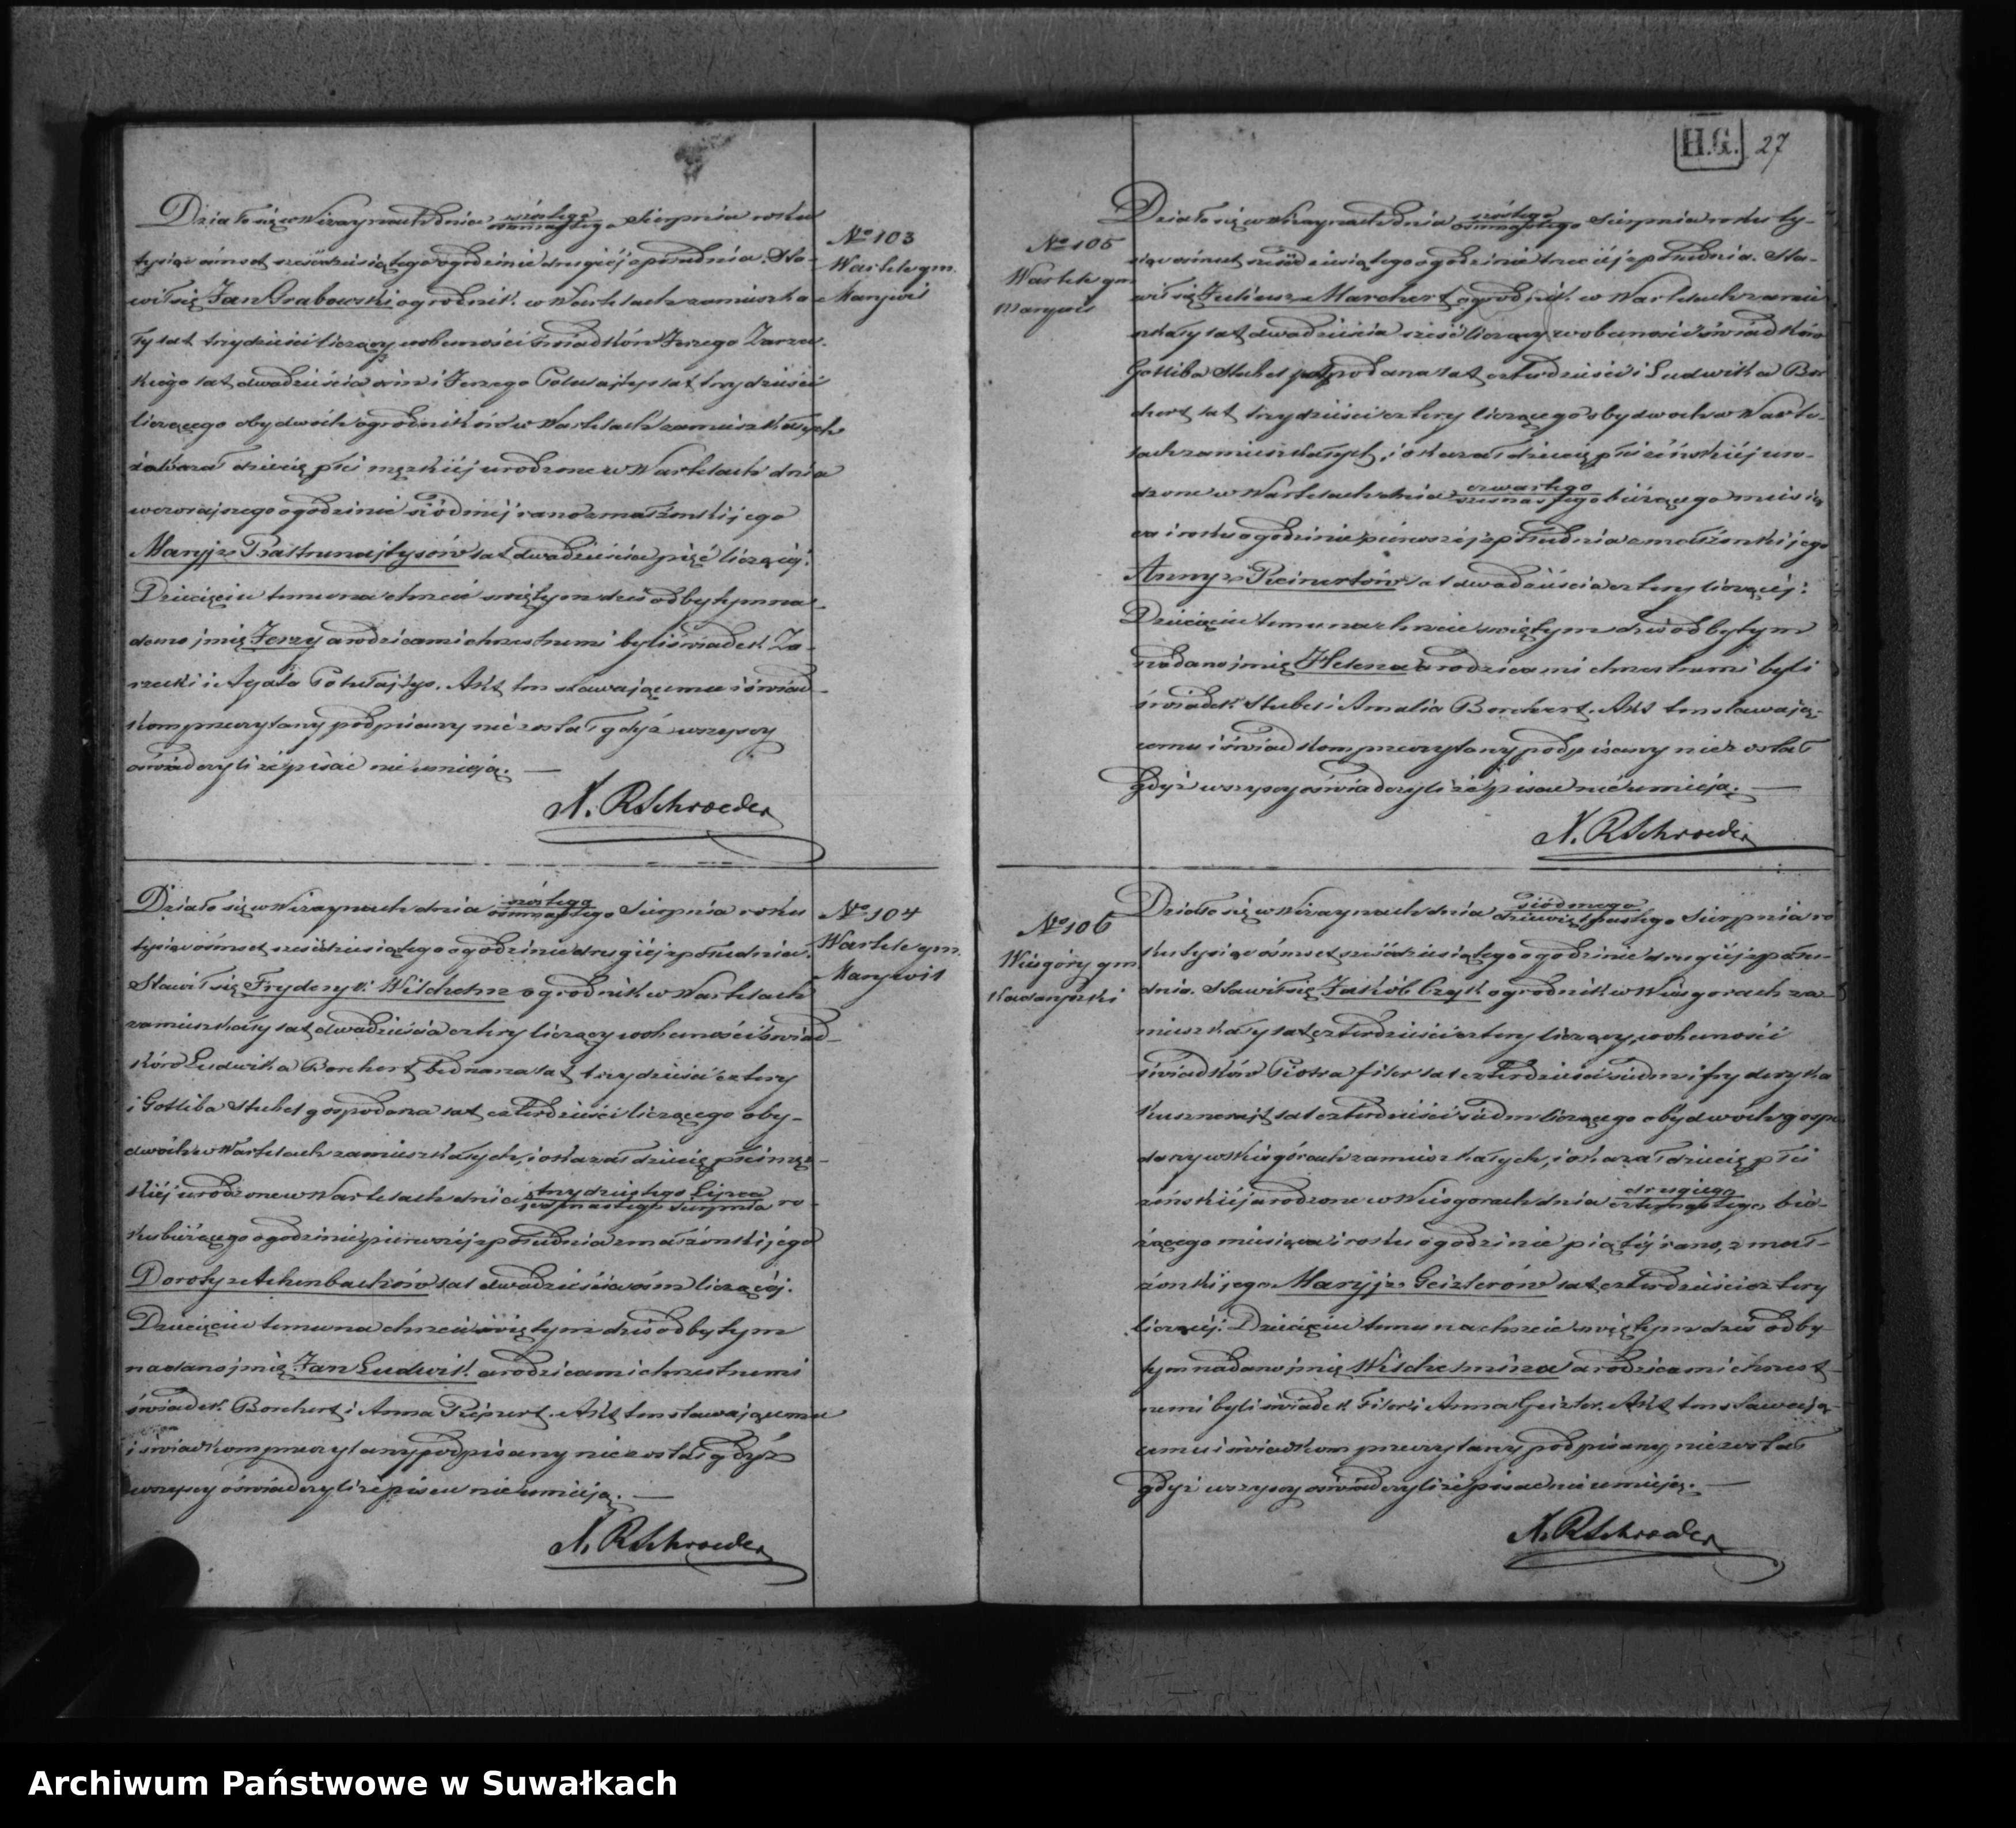 H.G. 27
Działo się w Wizaynach dnia szóstego / osmnastego Sierpnia roku
tysiąc ośmset sześćdziesiątego o godzinie drugiéj z południa. Sta-
wił się Jan Grabowski ogrodnik w Wartelach zamieszka-
ły lat trzydzieści liczący w obecności świadków Jerzego Zarze-
kiego lat dwadzieścia ośm i Jerzego lat trzydzieści
liczącego obydwóch ogrodników w Wartelach zamieszkałych
i okazał dziecię płci męzkiéj urodzone w Wartelach dnia
wczorajszego o godzinie siódméj rano z małżonki jego
Maryi z lat dwadzieścia pięć liczącéj.
Dziecięciu temu na chrzcie świętym dziś odbytym na-
dano jmię Jerzy a rodzicami chrzestnemi byli świadek Za-
rzecki i Agata. Akt ten stawającemu i świad-
kom przeczytany podpisany nie został gdyż wszyscy
oświadczyli że pisać nie umieją. —
N. R Schroeder
No 103
Wartele gm.
Marywil
Działo się w Wizaynach dnia szóstego / osmnastego Sierpnia roku
tysiąc ośmset sześćdziesiątego o godzinie drugiéj z południa.
Stawił się Fryderyk Wilhelm ogrodnik w Wartelach
zamieszkały lat dwadzieścia cztery liczący w obecności świad-
ków Ludwika Borchert bednarza lat trzydzieści cztery
i Gotliba Stubel gospodarza lat czterdzieści liczącego oby-
dwóch w Wartelach zamieszkałych, i okazał dziecię płci męz-
kiéj urodzone w Wartelach dnia trzydziestego Lipca / jedynastego Sierpnia ro-
ku bieżącego o godzinie pierwszéj z południa z małżonki jego
Doroty z Achenbachów lat dwadzieścia ośm liczącéj.
Dziecięciu temu na chrzcie świętym dziś odbytym
nadano jmię Jan Ludwik a rodzicami chrzestnemi
świadek Borchert i Anna. Akt ten stawającemu
i świadkom przeczytany podpisany nie został gdyż
wszyscy oświadczyli że pisać nie umieją. —
N. R Schroeder
No 104
Wartele gm.
Marywil
No 105
Wartele gm
Marywil
Działo się w Wizaynach dnia szóstego / osmnastego Sierpnia roku ty-
siąc ośmset sześćdziesiątego o godzinie trzeciéj z południa. Sta-
wił się Juliusz Marchert ogrodnik w Wartelach zamie-
szkały lat dwadzieścia sześć liczący w obecności świadków
Gotliba Stubel gospodarza lat czterdzieści i Ludwika Bor
chert lat trzydzieści cztery liczącego obydwóch w Warte-
lach zamieszkałych, i okazał dziecię płci żeńskiéj uro-
dzone w Wartelach dnia czwartego / szesnastego bieżącego miesią
ca i roku o godzinie pierwszéj z południa z małżonki jego
Anny z Reinertów lat dwadzieścia cztery liczącéj.
Dziecięciu temu na chrzcie świętym dziś odbytym
nadano jmię Helena a rodzicami chrzestnemi byli
świadek Stubel i Amalia Borchert. Akt ten stawają-
cemu i świadkom przeczytany podpisany nie został
gdyż wszyscy oświadczyli że pisać nie umieją. —
N. R Schroeder
No 106
Wisgóry gm
Kadaryszki
Działo się w Wizaynach dnia siódmego / dziewiętnastego Sierpnia ro
ku tysiąc ośmset sześćdziesiątego o godzinie drugiéj z połu-
dnia. Stawił się Jakób Czyk ogrodnik w Wisgorach za-
mieszkały lat czterdzieści cztery liczący, w obecności
świadków Piotra Filer lat czterdzieści siedm i Fryderyka
lat czterdzieści siedm liczącego obydwóch gospo
darzy w Wisgórach zamieszkałych, i okazał dziecię płci
żeńskiéj urodzone w Wisgorach dnia drugiego / czternastego bie-
żącego miesiąca i roku o godzinie piątéj rano, z mał-
żonki jego Maryi z Geizlerów lat czterdzieści cztery
liczącéj. Dziecięciu temu na chrzcie świętym dziś odby-
tym nadano jmię Wilhelmina a rodzicami chrzest-
nemi byli świadek Filer i Anna Geizler. Akt ten stawają-
cemu i świadkom przeczytany podpisany nie został
gdyż wszyscy oświadczyli że pisać nie umieją. —
N. R Schroeder
Archiwum Państwowe w Suwałkach